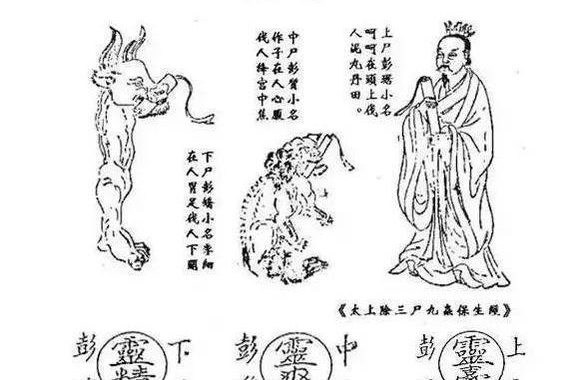 上尸彭琚小名
呵呵在頭上伐
人泥丸丹田。
中尸彭質小名
作子在人心腹
伐人絳宮中焦
下尸彭矯小名季細
在人胃足伐人下關
《太上除三尸九蟲保生》
上
靈
彭
中
靈
彭
下
靈
彭